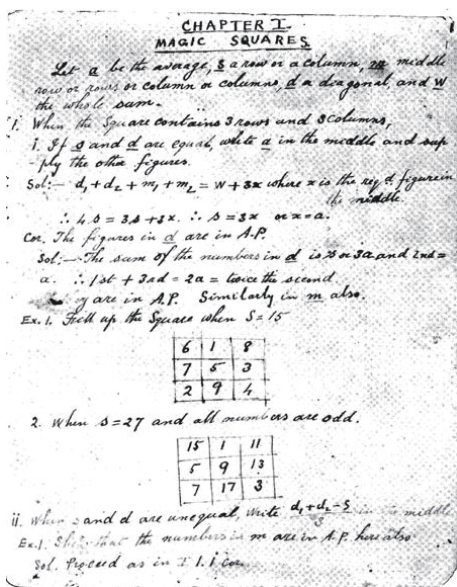 CHAPTER I.
MAGIC SQUARES
Let a be the average, S a row or a column, m middle
row or rows or column or columns, d a diagonal, and W
the whole sum.
1. When the Square contains 3 rows and 3 columns,
i. If S and d are equal, write a in the middle and sup
-ply the other figures.
Sol:— d₁ + d₂ + m₁ + m₂ = W + 3x where x is the reqd figure in
the middle.
∴ 4S = 3S + 3x. ∴ S = 3x or x = a.
Cor. The figures in d are in A.P.
Sol:— The sum of the numbers in d is S or 3a and 2nd =
a. ∴ 1st + 3rd = 2a = twice the second
are in A.P. Similarly in m also.
Ex. 1. Fill up the Square when S = 15
6 1 8
7 5 3
2 9 4
2. When S = 27 and all numbers are odd.
15 1 11
5 9 13
7 17 3
ii. When S and d are unequal, write d₁ + d₂ - S / 3 in the middle
Ex. 1. Shew that the numbers in m are in A.P. here also
Sol. Proceed as in I 1. i Cor.